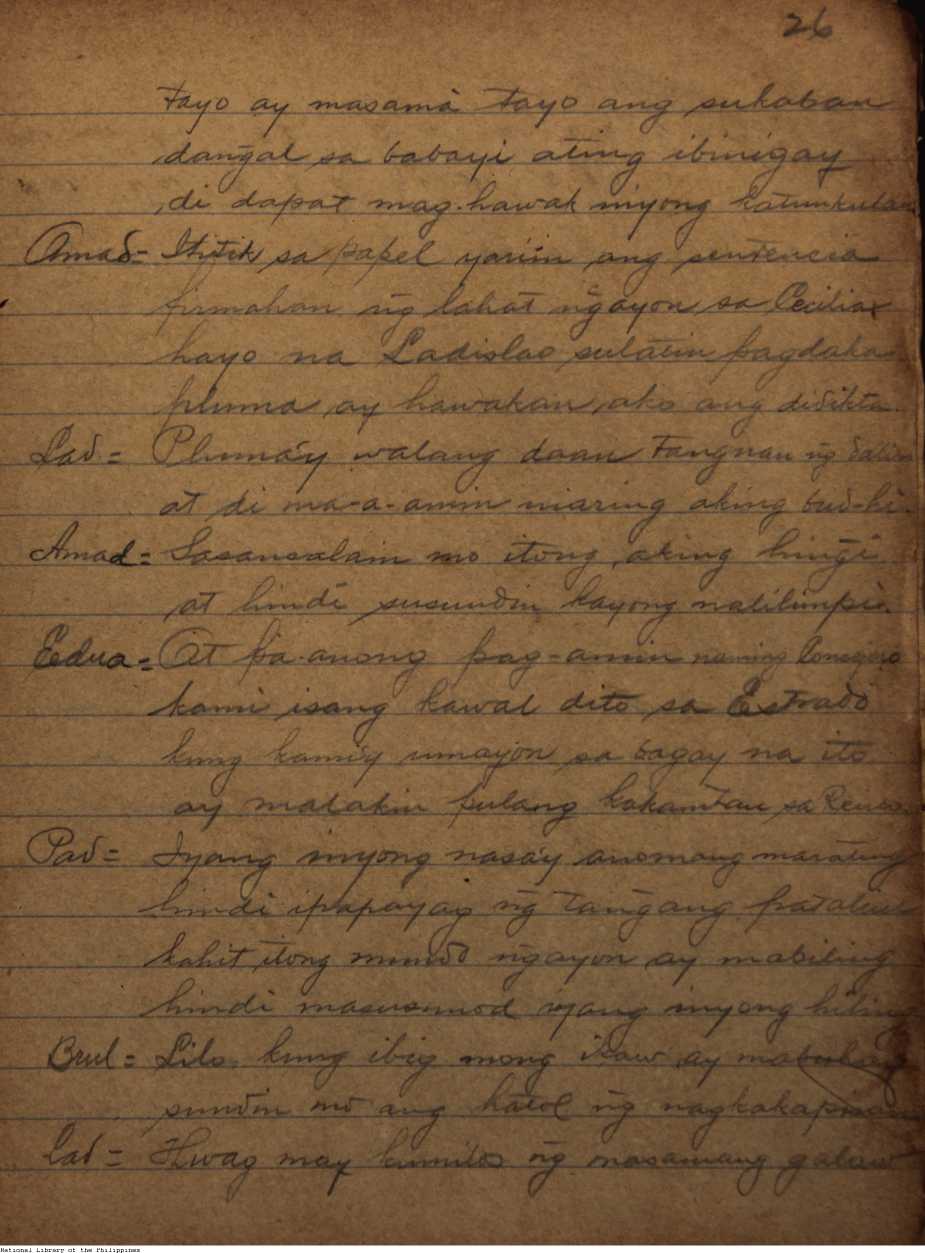 26
tayo ay masamâ tayo ang sukaban
dangal sa babayi ating ibinigay
di dapat mag-hawak inyong katunkulan
Amad= Ititik sa papel yariin ang sentencia
firmahan ng lahat ngayon sa Cecilia
hayo na Ladislao sulatin pagdaka
pluma ay hawakan, ako ang didikta.
Lad= Pluma'y walang daan tangnan ng
at di ma-a-amin niaring aking bud-hi.
Amad= Sasansalain mo itong aking hingi
at hindi susundin kayong nalilimpi.
Edua= At pa-anong pag-amin naming
kami isang kawal dito sa Estrado
kung kami'y umayon sa bagay na ito
ay malaking pulang kakamtan sa
Pad= Iyang inyong nasa'y anomang marating
hindi ipapayag ng tangang
kahit itong mundo ngayon ay mabiling
hindi masusunod iyang inyong hiling
Brul= Lilo, kung ibig mong ikaw ay mabuhay
sundin mo ang hatol ng nagkakapisan
Lad= Hwag may kumilos ng masamang galaw
National Library of the Philippines